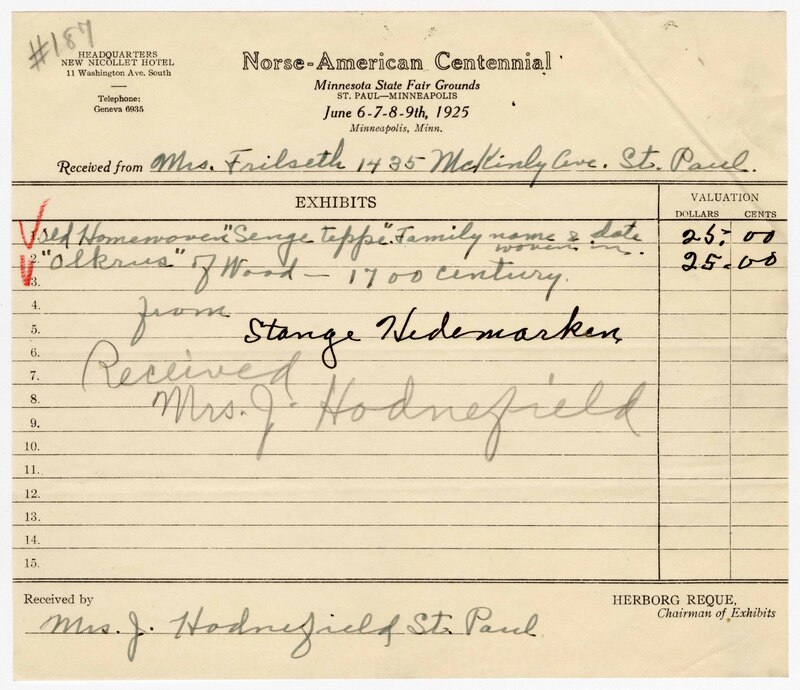 #187
HEADQUARTERS
NEW NICOLLET HOTEL
11 Washington Ave. South
Telephone:
Geneva 6935
Norse-American Centennial
Minnesota State Fair Grounds
ST. PAUL—MINNEAPOLIS
June 6-7-8-9th, 1925
Minneapolis, Minn.
Received from Mrs. Frilseth 1435 McKinly Ave. St. Paul.
EXHIBITS
VALUATION
DOLLARS CENTS
1. old Homewoven "Senge teppe". Family name & date 25. 00
woven in.
2. "Olkrus" of Wood — 1700 century. 25. 00
3.
4. from
5. Stange Hedemarken
6.
7. Received
8. Mrs. J. Hodnefield
9.
10.
11.
12.
13.
14.
15.
Received by
Mrs. J. Hodnefield, St. Paul
HERBORG REQUE,
Chairman of Exhibits